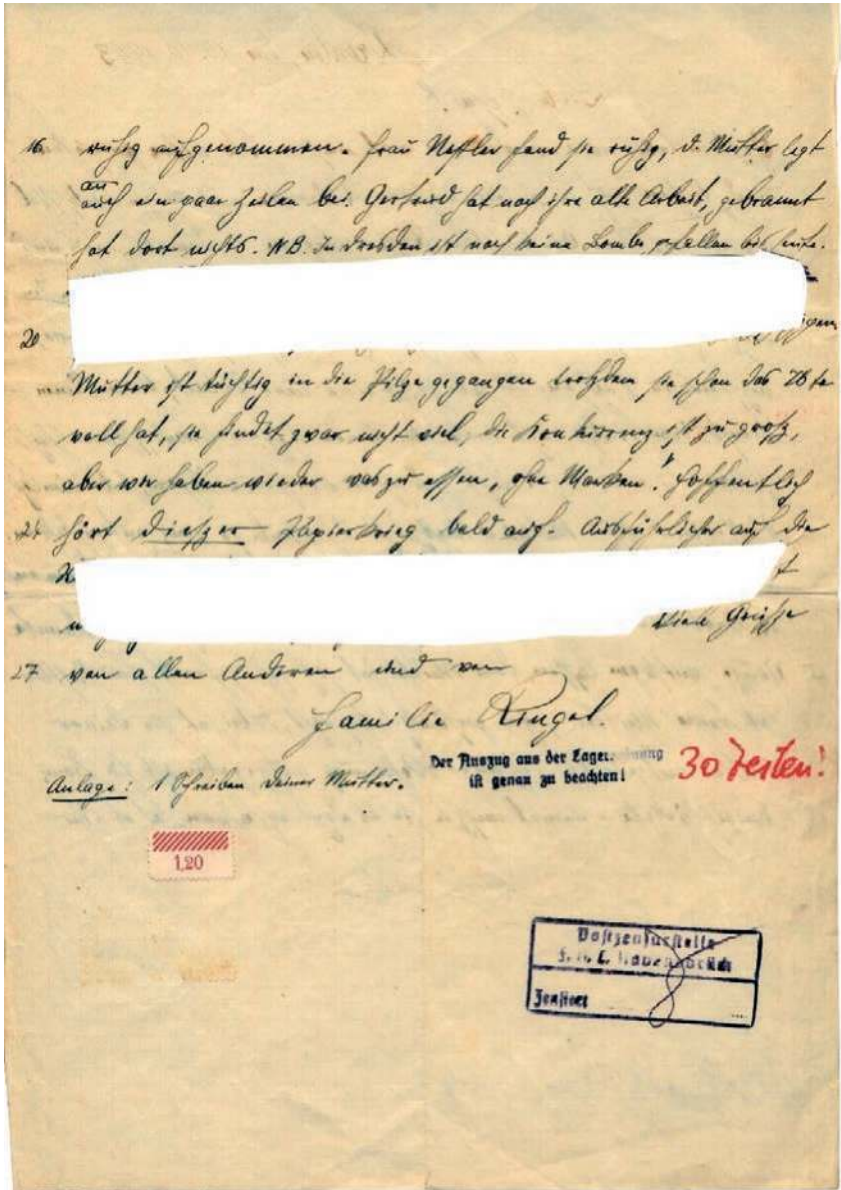 16. ruhig aufgenommen. Frau fand sie ruhig, d. Mutter legt
an
auch ein paar Zeilen bei. Gertrud hat noch ihre alte Arbeit, gebrannt
hat dort nichts. NB. In Dresden ist noch keine Bombe gefallen bis heute.
20.
Mutter ist tüchtig in die Pilze gegangen trotzdem sie schon das 78te
voll hat, sie findet zwar nicht viel, die Konkurrenz ist zu groß,
aber wir haben wieder was zu essen, „ohne Marken". Hoffentlich
hört dieser Papierkrieg bald auf. Ausführlicher auf die
Viele Grüsse
27 von allen Anderen und von
Familie Ringel.
Der Auszug aus der Lager...nung
ist genau zu beachten!
30 Zeilen!
Anlage: 1 Schreiben Deiner Mutter.
1,20
Postzensurstelle
Zensiert